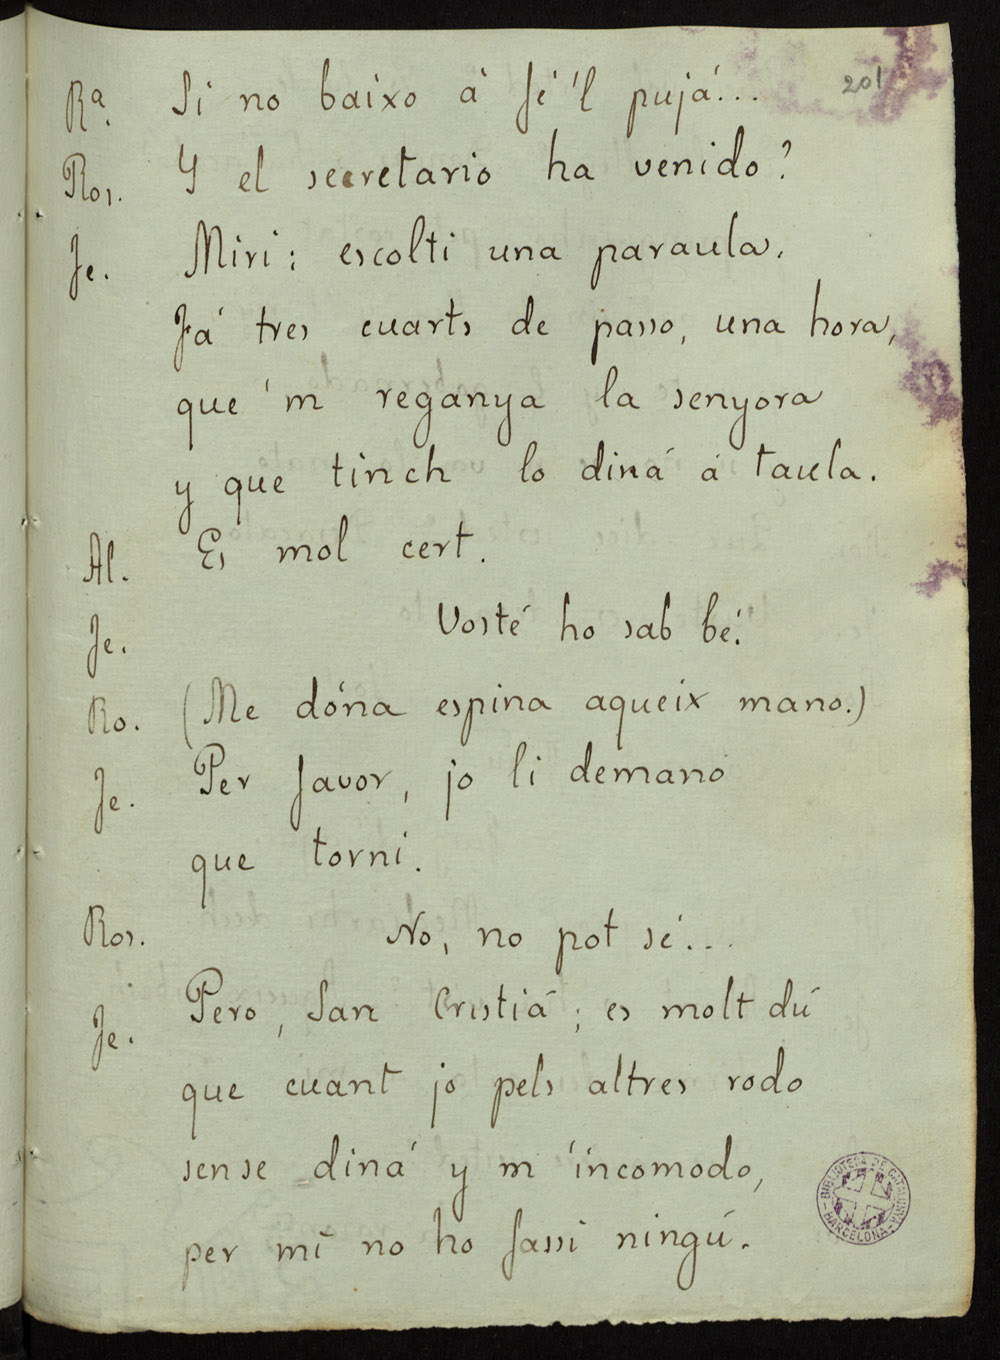 201
Rª. Si no baixo á fé 'l pujá...
Ros. Y el secretario ha venido?
Je. Miri: escolti una paraula.
Fá tres cuarts de passo, una hora,
que 'm reganya la senyora
y que tinch lo diná á taula.
Al. Es mol cert.
Je. Vosté ho sab bé.
Ro. (Me dóna espina aqueix mano.)
Je. Per favor, jo li demano
que torni.
Ros. No, no pot sé...
Je. Pero, San Cristiá; es molt dú
que cuant jo pels altres rodo
sense diná y m 'incomodo,
per mí no ho fassi ningú.
BIBLIOTECA DE CATALUNYA - BARCELONA -